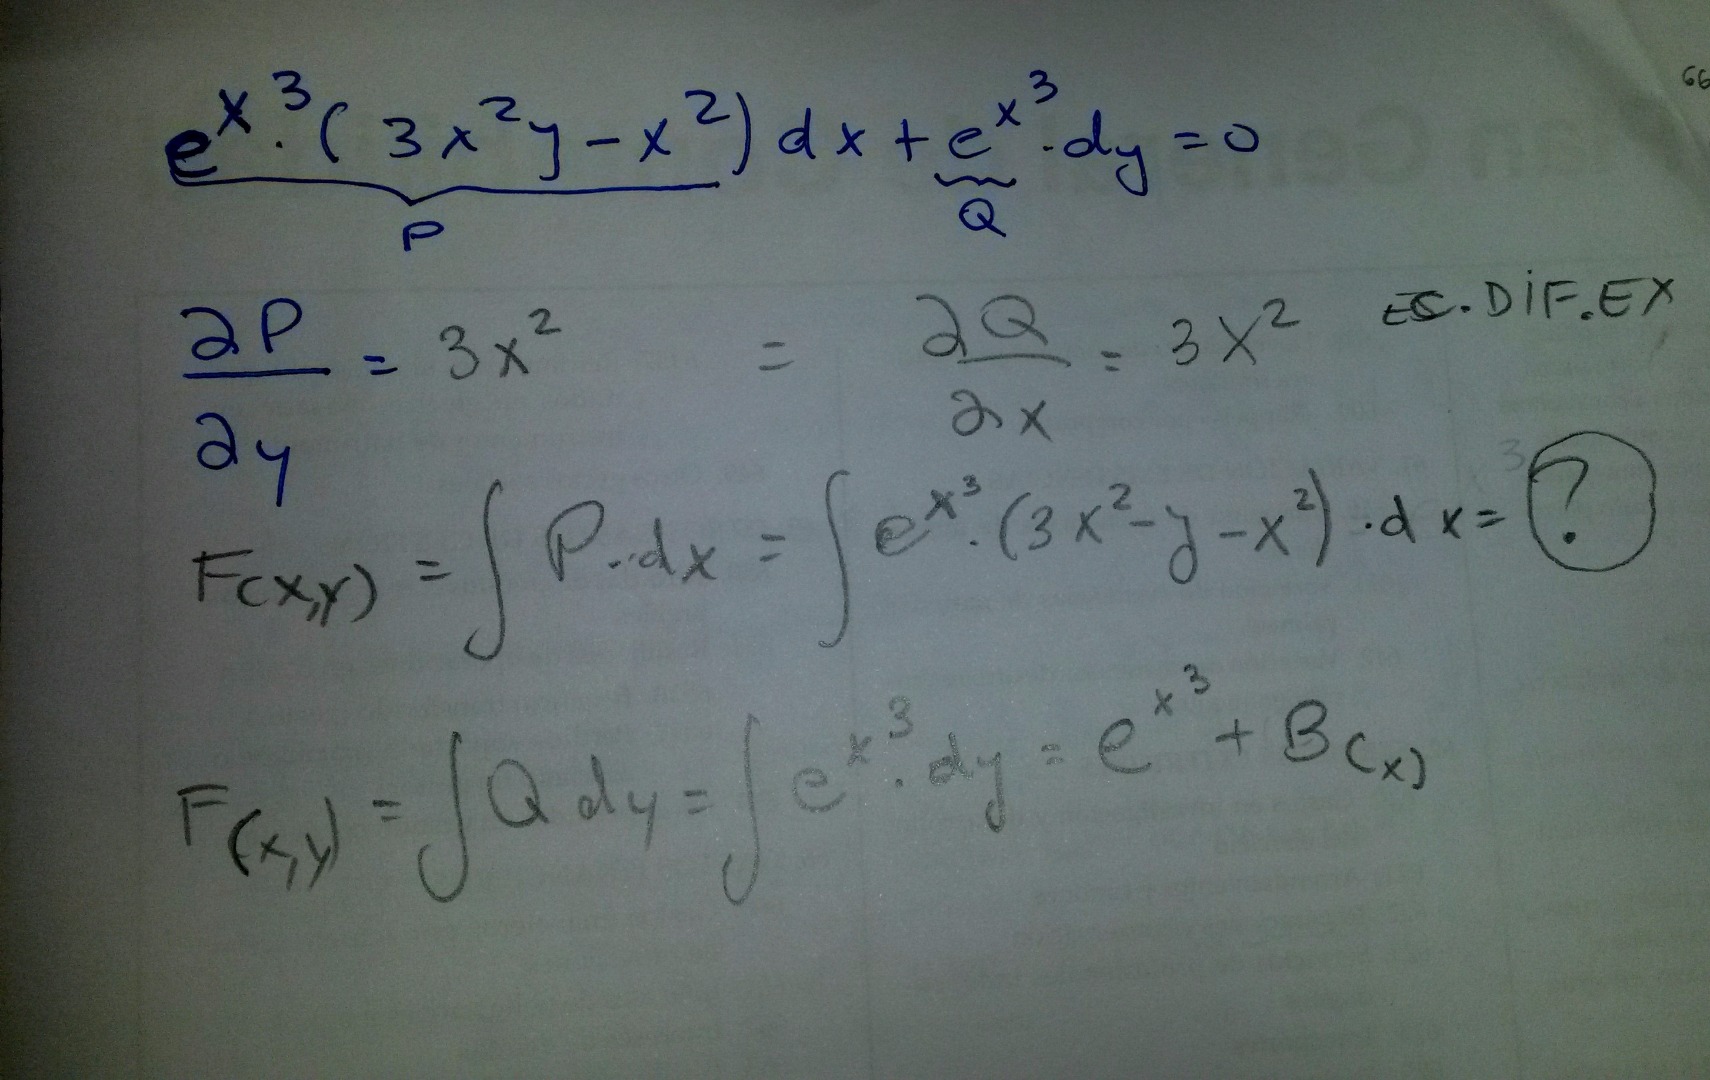 e^x^3 · (3x^2y - x^2) dx + e^x^3 · dy = 0
P Q
∂P/∂y = 3x^2 = ∂Q/∂x = 3x^2 EC. DIF. EX
F(x,y) = ∫ P · dx = ∫ e^x^3 · (3x^2 - y - x^2) · dx = ?
F(x,y) = ∫ Q dy = ∫ e^x^3 · dy = e^x^3 + B(x)